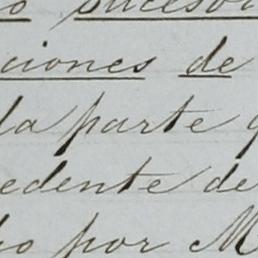 o sucesor
ciones de
la parte q
edente de
o por M